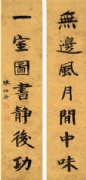 無邊風月閒中味
一室圖書靜後功